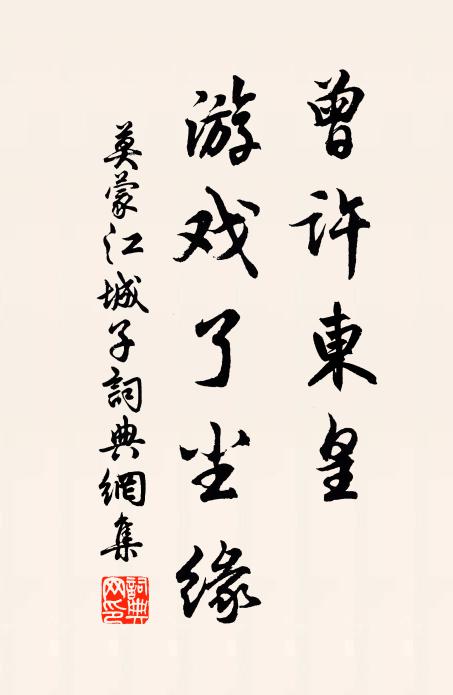 曾许東皇
游戏了尘缘
莫蒙江城子詞典網集
詞典網印